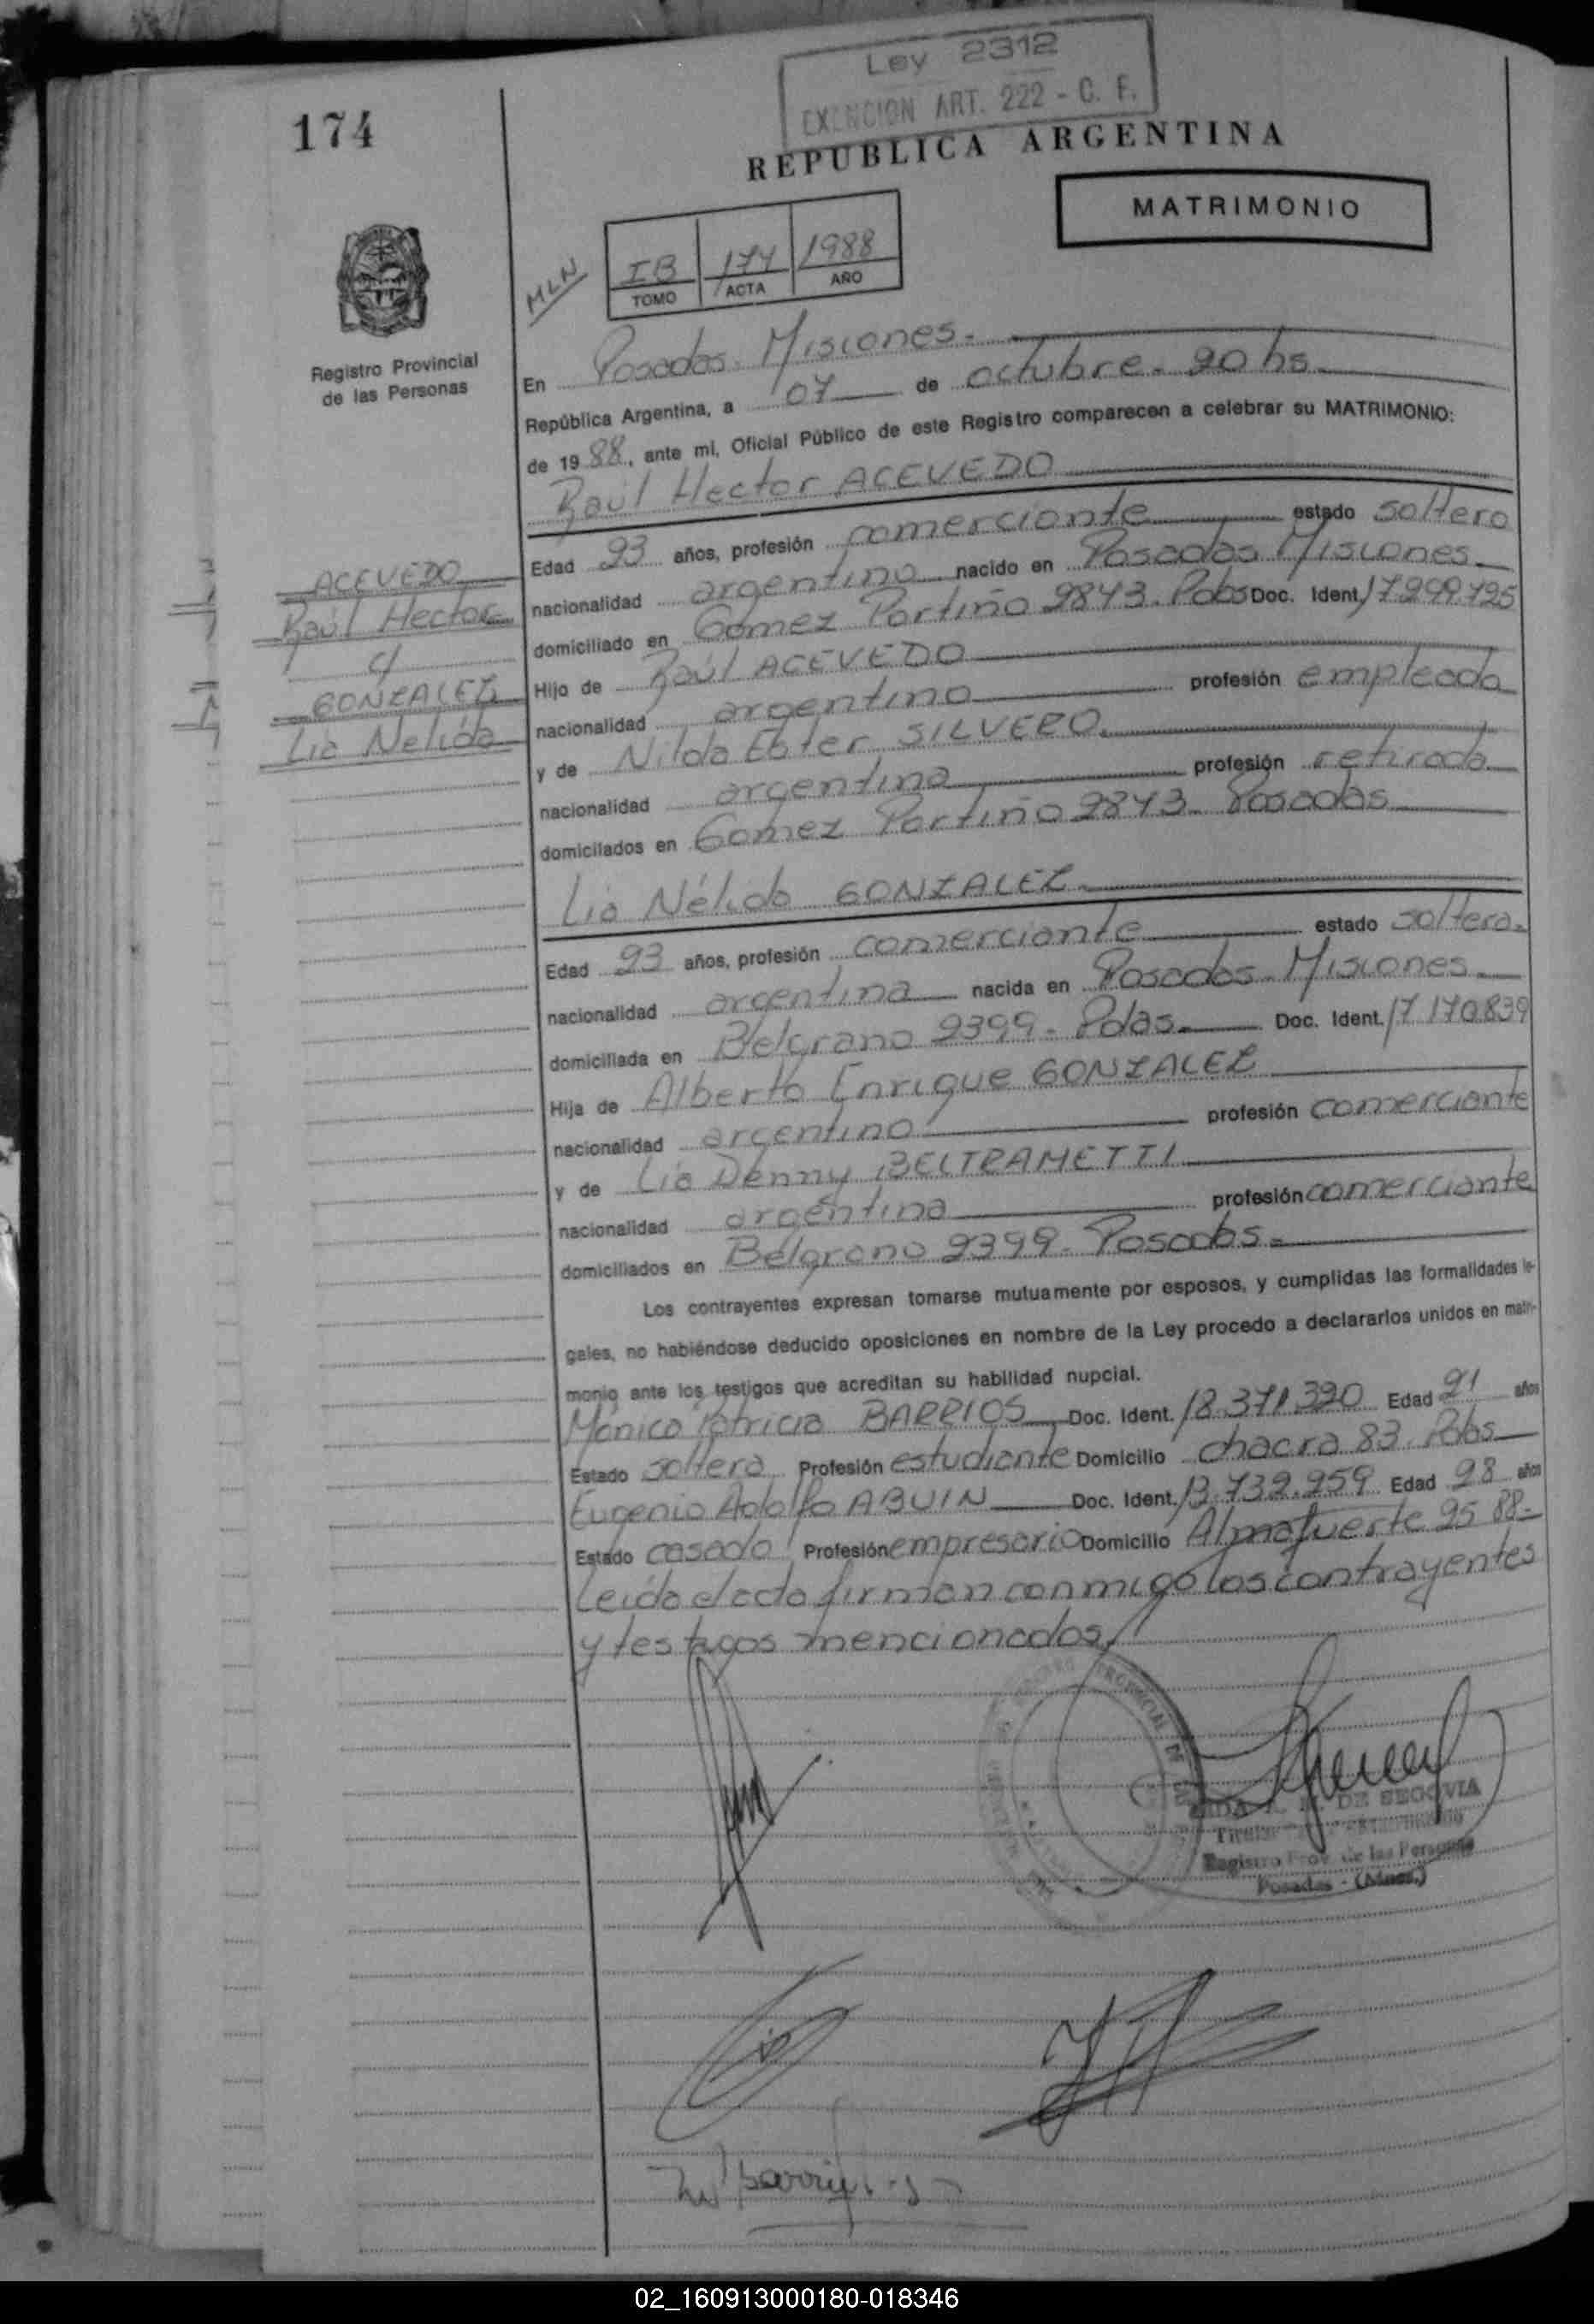 Ley 2312
EXENCION ART. 222 - C. F.
174
REPUBLICA ARGENTINA
MATRIMONIO
MLN
IB 174 1988
TOMO ACTA AÑO
Registro Provincial
de las Personas
En Posadas. Misiones.
República Argentina, a 07 de octubre. 20 hs
de 1988, ante mi, Oficial Público de este Registro comparecen a celebrar su MATRIMONIO:
Raúl Hector ACEVEDO
Edad 23 años, profesión comerciante estado soltero
nacionalidad argentino nacido en Posadas Misiones
domiciliado en Gomez Portiño 2843. Pdas Doc. Ident. 17.299.725
Hijo de Raúl ACEVEDO
nacionalidad argentino profesión empleado
y de Nilda Ester SILVERO.
nacionalidad argentina profesión retirada
domicilados en Gomez Portiño 2843. Posadas
ACEVEDO
Raúl Hector
c/
GONZALEZ
Lia Nelida
Lia Nélida GONZALEZ
Edad 23 años, profesión comerciante estado soltera.
nacionalidad argentina nacida en Posadas. Misiones
domiciliada en Belgrano 2399. Pdas. Doc. Ident. 17.170.839
Hija de Alberto Enrique GONZALEZ
nacionalidad argentino profesión comerciante
y de Lia Denny BELTRAMETTI
nacionalidad argentina profesión comerciante
domiciliados en Belgrano 2399. Posadas.
Los contrayentes expresan tomarse mutuamente por esposos, y cumplidas las formalidades le-
gales, no habiéndose deducido oposiciones en nombre de la Ley procedo a declararlos unidos en matri-
monio ante los testigos que acreditan su habilidad nupcial.
Mónica Patricia BARRIOS Doc. Ident. 18.371.320 Edad 21 años
Estado soltera Profesión estudiante Domicilio chacra 83. Pdas
Eugenio Adolfo ABUIN Doc. Ident. 13.732.259 Edad 28 años
Estado casado Profesión empresario Domicilio Almafuerte 25 88-
Leída el acta firman conmigo los contrayentes
y testigos mencionados
DE SEGOVIA
Registro Prov. de las Personas
Posadas - (Mnes.)
02_160913000180-018346